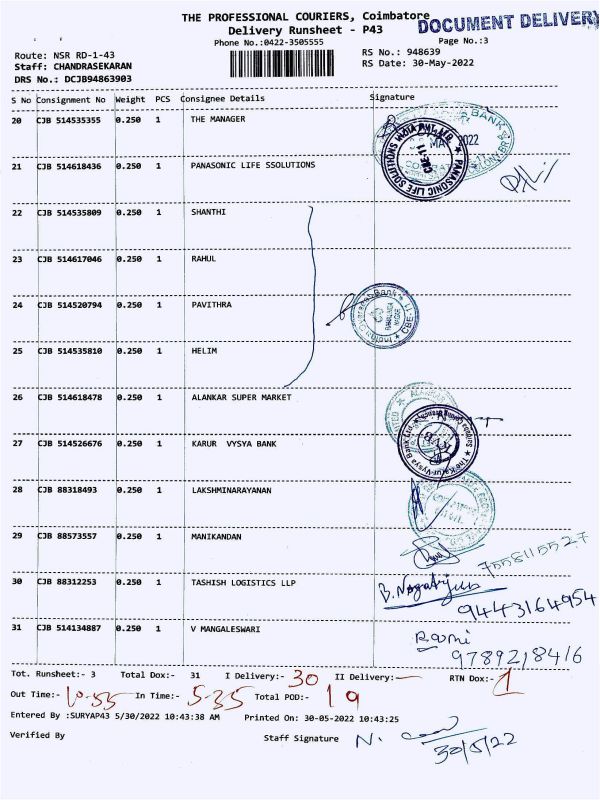 THE PROFESSIONAL COURIERS, Coimbatore
DOCUMENT DELIVERY
Delivery Runsheet - P43
Phone No.:0422-3505555
Page No.:3
Route: NSR RD-1-43
RS No.: 948639
Staff: CHANDRASEKARAN
RS Date: 30-May-2022
DRS No.: DCJB94863903
S No Consignment No Weight PCS Consignee Details Signature
20 CJB 514535355 0.250 1 THE MANAGER
21 CJB 514618436 0.250 1 PANASONIC LIFE SSOLUTIONS
PANASONIC LIFE SOLUTIONS INDIA PVT. LTD. CBE-11
22 CJB 514535809 0.250 1 SHANTHI
23 CJB 514617046 0.250 1 RAHUL
24 CJB 514520794 0.250 1 PAVITHRA
Indian Overseas Bank CBE-11
25 CJB 514535810 0.250 1 HELIM
26 CJB 514618478 0.250 1 ALANKAR SUPER MARKET
27 CJB 514526676 0.250 1 KARUR VYSYA BANK
The Karur Vysya Bank Ltd.
28 CJB 88318493 0.250 1 LAKSHMINARAYANAN
29 CJB 88573557 0.250 1 MANIKANDAN
7558115527
30 CJB 88312253 0.250 1 TASHISH LOGISTICS LLP
9443164954
31 CJB 514134887 0.250 1 V MANGALESWARI
9789218416
Tot. Runsheet:- 3 Total Dox:- 31 I Delivery:- 30 II Delivery:- — RTN Dox:- 1
Out Time:- 10-55 In Time:- 5-35 Total POD:- 19
Entered By :SURYAP43 5/30/2022 10:43:38 AM Printed On: 30-05-2022 10:43:25
Verified By Staff Signature
30/5/22